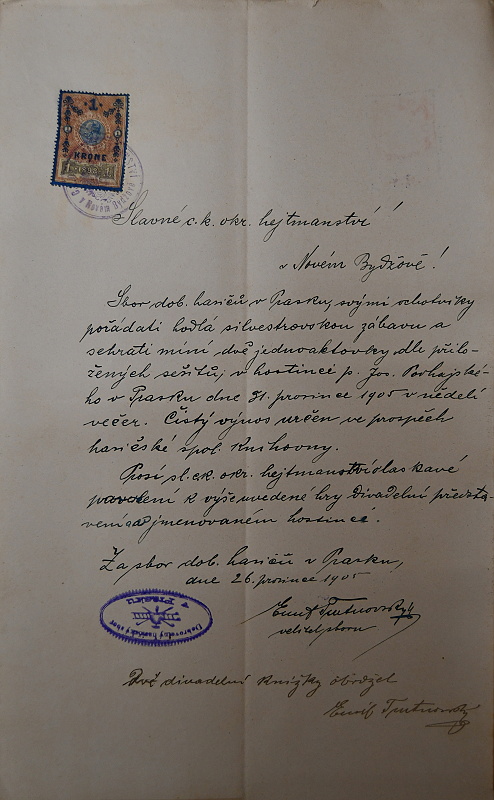 1
KRONE
1 1898 1
v Novém Bydžově
Slavné c. k. okr. hejtmanství
v Novém Bydžově!
Sbor dob. hasičů v Prasku, svými ochotníky
pořádati hodlá silvestrovskou zábavu a
sehrati míní dvě jednoaktovky dle přilo-
žených sešitů, v hostinci p. Jos. Porhajské-
ho v Prasku dne 31. prosince 1905 v neděli
večer. Čistý výnos určen ve prospěch
hasičské spol. knihovny.
Prosí sl. c. k. okr. hejtmanství o laskavé
povolení k výšeuvedené hry divadelní předsta-
vení jmenovaném hostinci.
Za sbor dob. hasičů v Prasku,
dne 26. prosince 1905
Emil Trutnovský
velitel sboru
Dobrovolný hasičský sbor
v Prasku
Dvě divadelní knížky obdržel
Emil Trutnovský